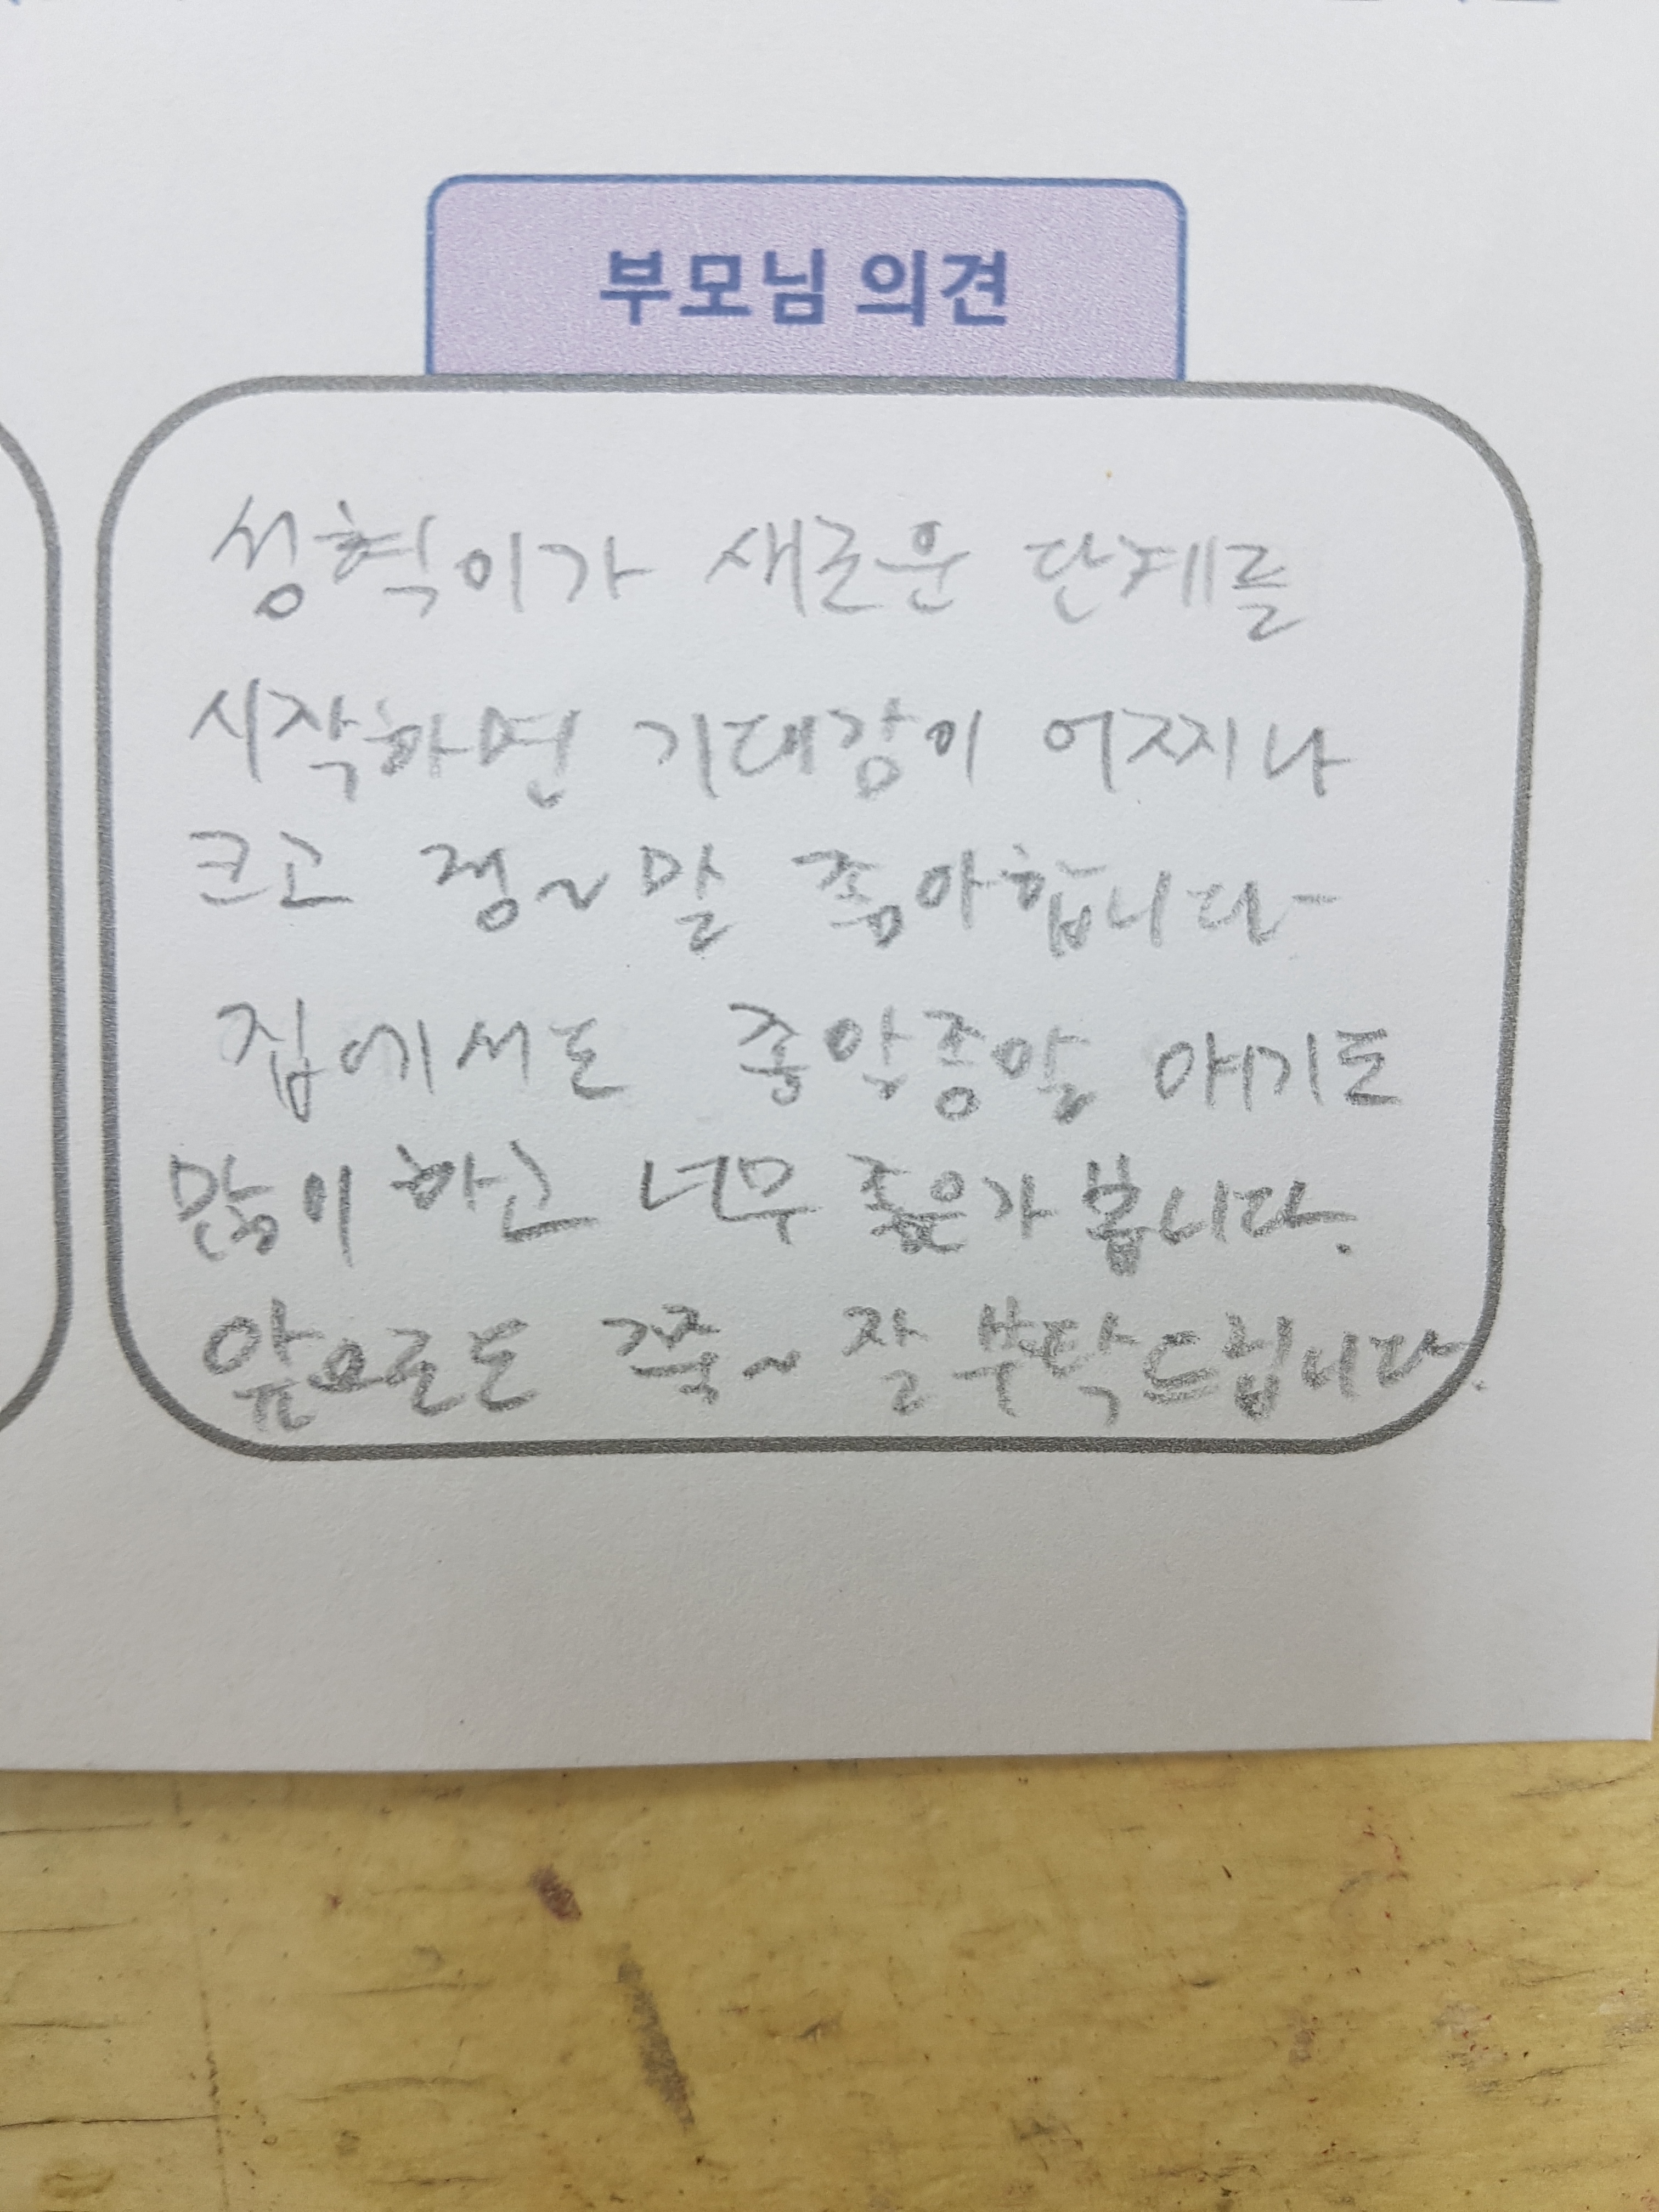 부모님 의견
성혁이가 새로운 단계를
시작하면 기대감이 어찌나
크고 정~말 좋아합니다
집에서도 종알종알 얘기도
많이 하고 너무 좋은가 봅니다.
앞으로도 쭉~ 잘 부탁드립니다.